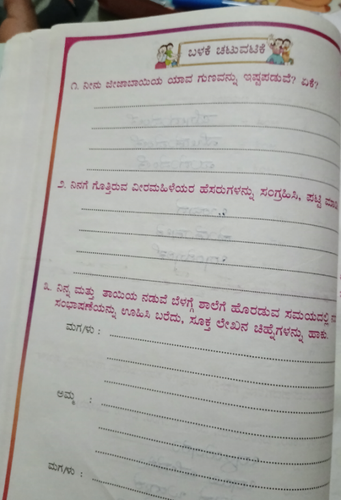 ಬಳಕೆ ಚಟುವಟಿಕೆ
೧. ನೀನು ಜೀಜಾಬಾಯಿಯ ಯಾವ ಗುಣವನ್ನು ಇಷ್ಟಪಡುವೆ? ಏಕೆ?
೨. ನಿನಗೆ ಗೊತ್ತಿರುವ ವೀರಮಹಿಳೆಯರ ಹೆಸರುಗಳನ್ನು ಸಂಗ್ರಹಿಸಿ, ಪಟ್ಟಿ
೩. ನಿನ್ನ ಮತ್ತು ತಾಯಿಯ ನಡುವೆ ಬೆಳಗ್ಗೆ ಶಾಲೆಗೆ ಹೊರಡುವ ಸಮಯದಲ್ಲಿ
ಸಂಭಾಷಣೆಯನ್ನು ಊಹಿಸಿ ಬರೆದು, ಸೂಕ್ತ ಲೇಖನ ಚಿಹ್ನೆಗಳನ್ನು ಹಾಕು.
ಮಗ/ಳು :
ಅಮ್ಮ :
ಮಗ/ಳು :